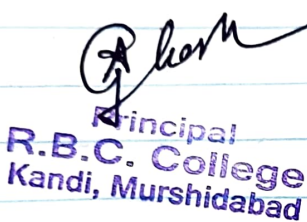 Principal
R.B.C. College
Kandi, Murshidabad